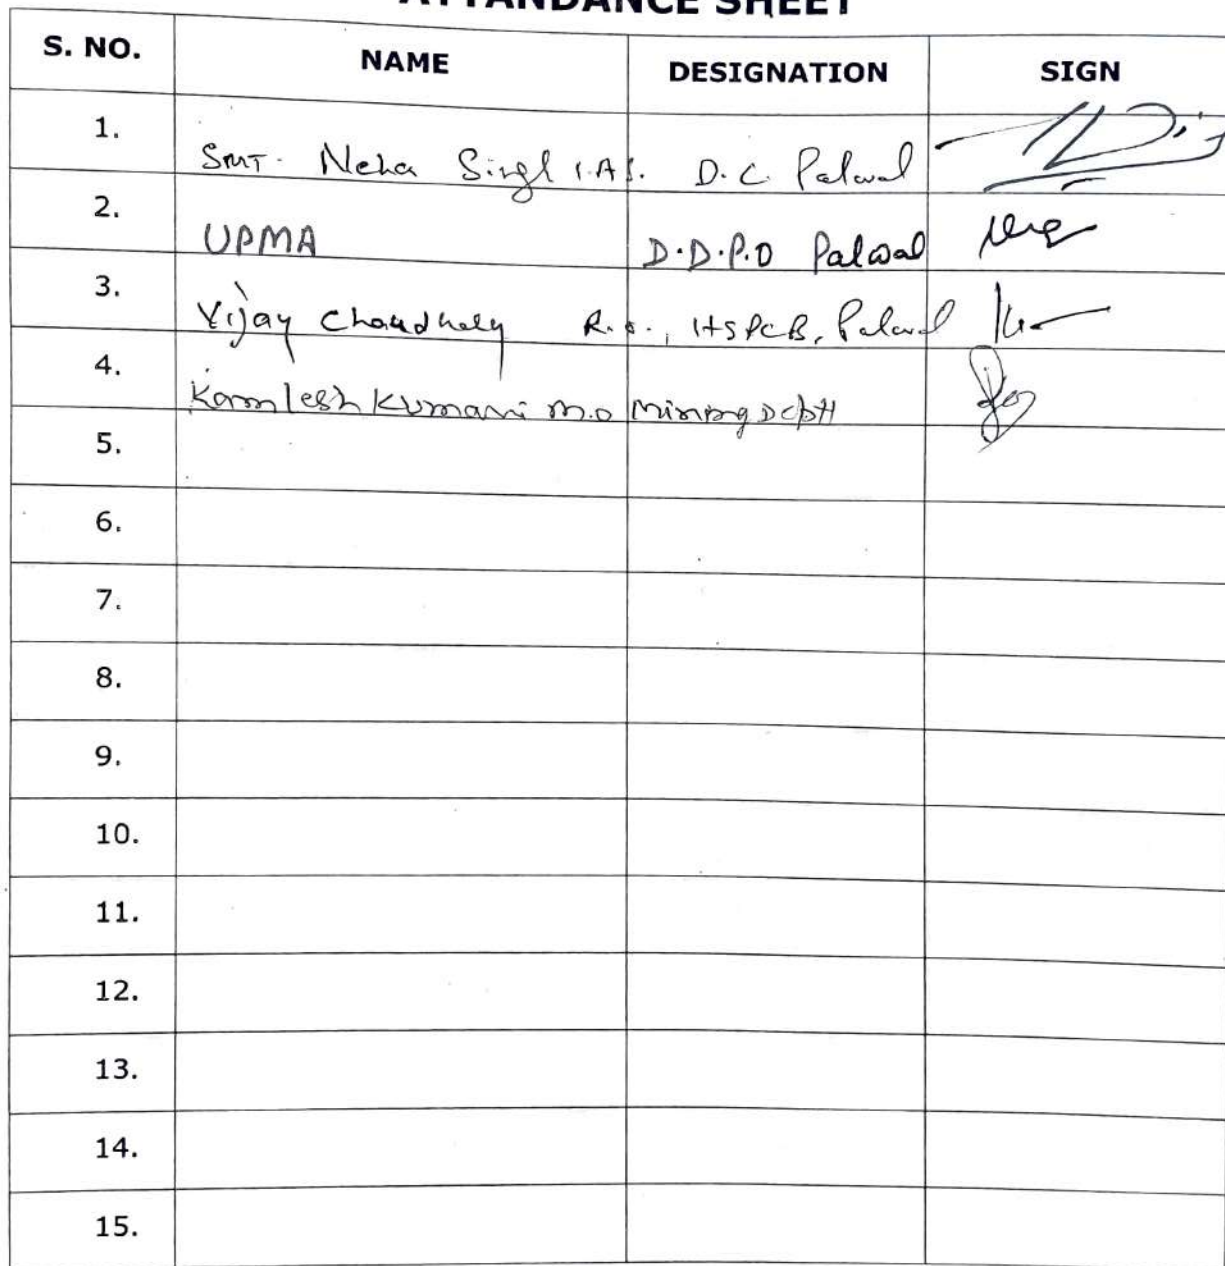 ATTANDANCE SHEET
S. NO. NAME DESIGNATION SIGN
1. SMT. Neha Singh I.A.S. D.C. Palwal
2. UPMA D.D.P.O Palwal
3. Vijay Chaudhary R.O., HSPCB, Palwal
4. Kamlesh Kumari M.O Mining Deptt
5.
6.
7.
8.
9.
10.
11.
12.
13.
14.
15.